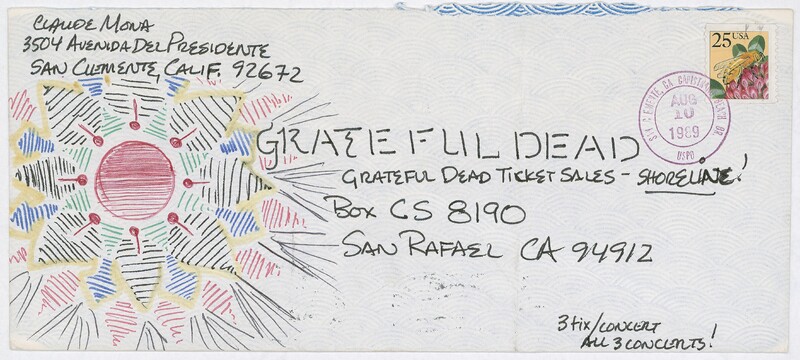 CLAUDE MONA
3504 AVENIDA DEL PRESIDENTE
SAN CLEMENTE, CALIF. 92672
25 USA
AUG
10
1989
USPO
GRATEFUL DEAD
GRATEFUL DEAD TICKET SALES - SHORELINE!
BOX CS 8190
SAN RAFAEL CA 94912
3 tix/CONCERT
ALL 3 CONCERTS!